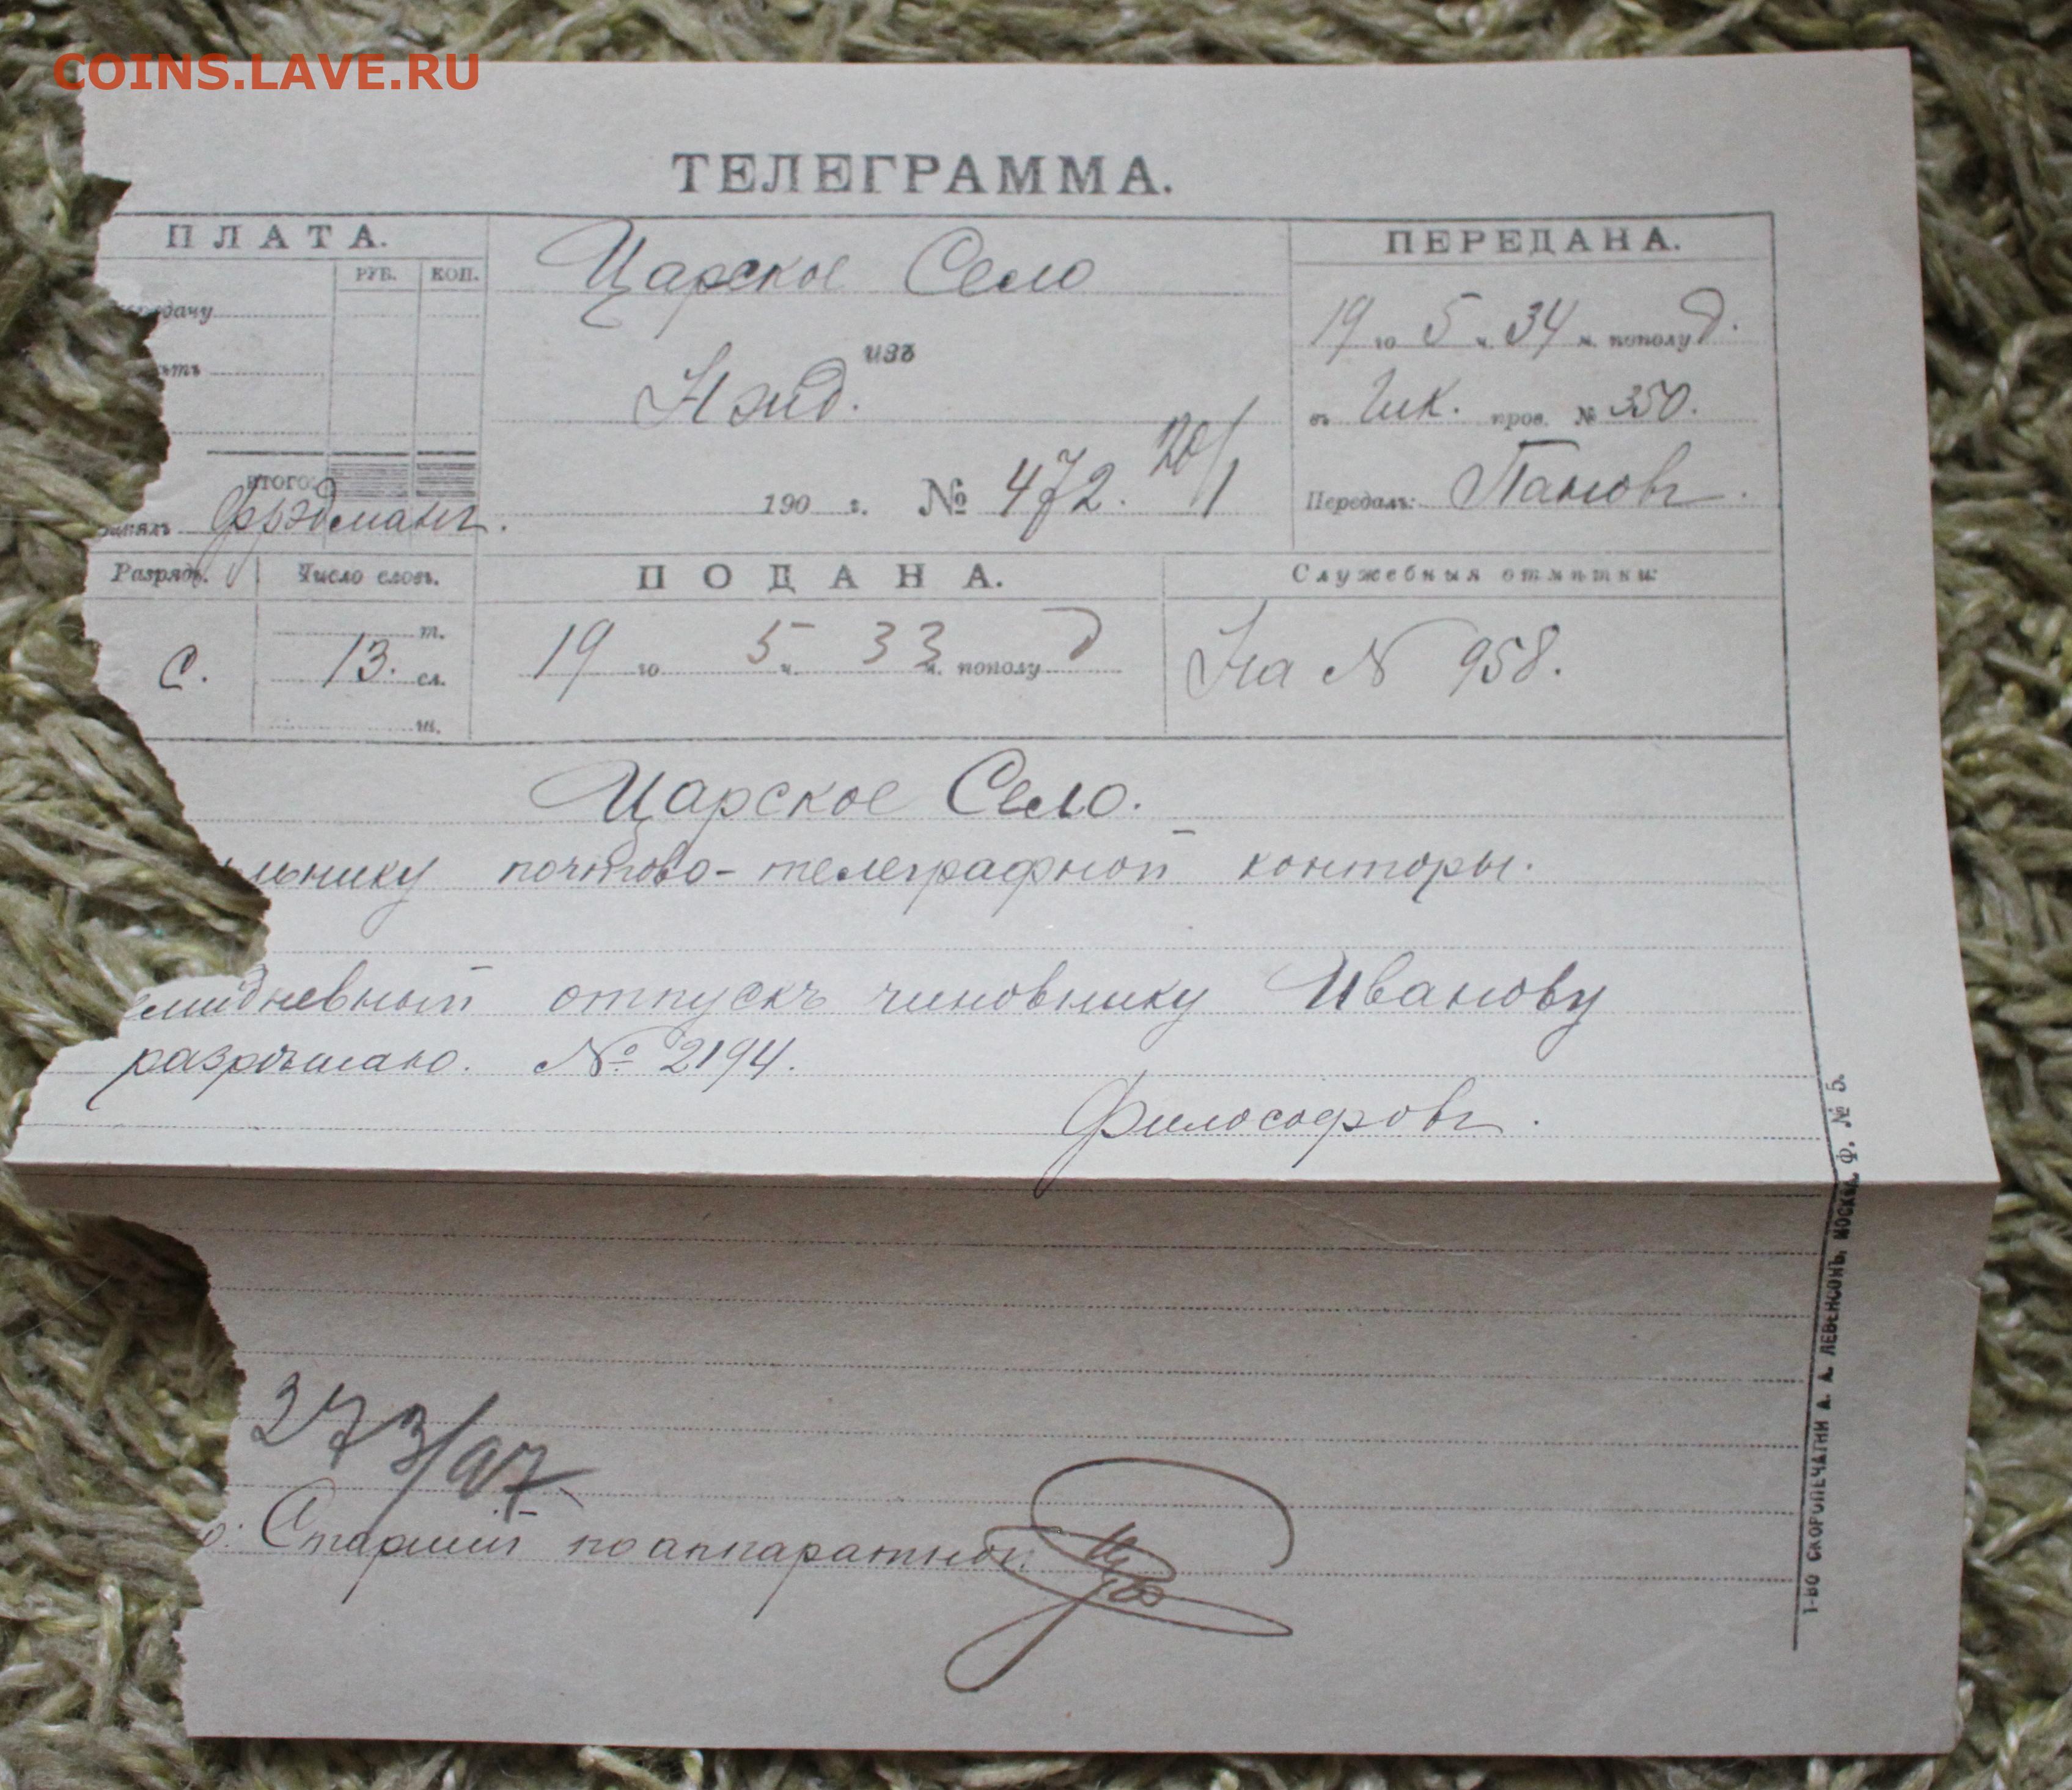 COINS.LAVE.RU
ТЕЛЕГРАММА.
ПЛАТА.
РУБ. КОП.
ИТОГО:
Фрэдманъ.
Царское Село
изъ
190 г. № 472. 20/1
ПЕРЕДАНА.
19 го 5 ч. 34 м. пополу д.
въ пров. № 350.
Передалъ: Пановъ.
Разрядъ. Число словъ.
т.
С. 13. сл.
ш.
ПОДАНА.
19 го 5 ч. 33 м. пополу д
Служебныя отмѣтки:
На № 958.
Царское Село.
льнику почтово-телеграфной конторы.
емидневный отпускъ чиновнику Иванову
разрѣшаю. № 2194.
Философовъ.
273/07
Старший по аппаратной
Т-ВО СКОРОПЕЧАТНИ А. А. ЛЕВЕНСОНЪ, МОСКВА. Ф. № 5.